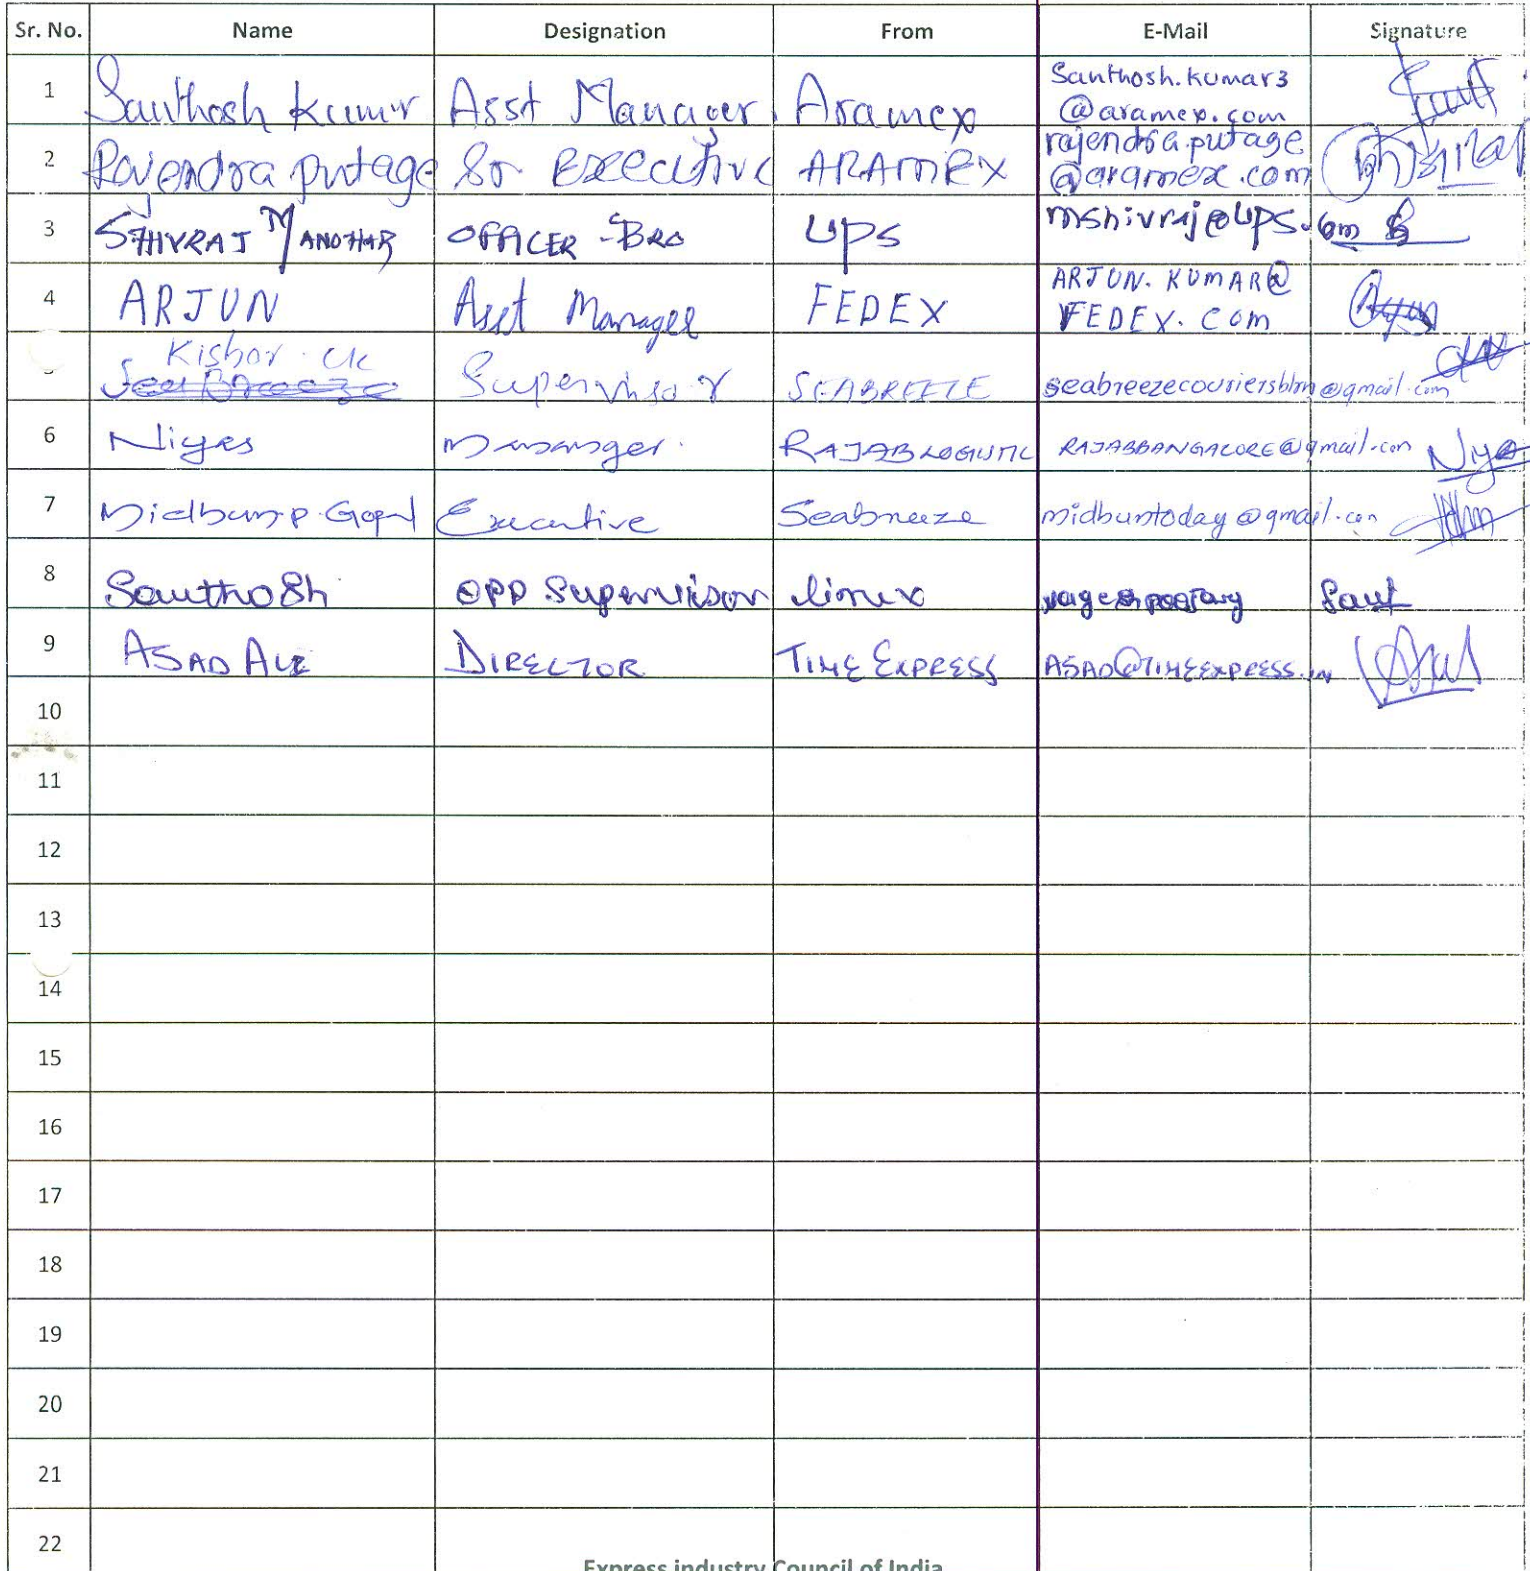 Sr. No. Name Designation From E-Mail Signature
1 Santhosh Kumar Asst Manager. Aramex Santhosh.kumar3
@aramex.com
2 Rajendra putage Sr Executive ARAMEX rajendra.putage
@aramex.com
3 SHIVRAJ MANOHAR OFFICER - BRO UPS mshivraj@ups.com
4 ARJUN Asst Manager FEDEX ARJUN.KUMAR@
FEDEX.COM
Kishor. CK
Sea Breeze Supervisor SEABREEZE seabreezecouriersblr@gmail.com
6 Niyas Manager. RAJAB LOGISTIC RAJABBANGALORE@gmail.com Niya
7 Midhun.P.Gopal Executive Seabreeze midhuntoday@gmail.com
8 Santhosh OPP Supervisor Sant
9 ASAD ALI DIRECTOR TIME EXPRESS ASAD@TIMEEXPRESS.IN
10
11
12
13
14
15
16
17
18
19
20
21
22
Express industry Council of India